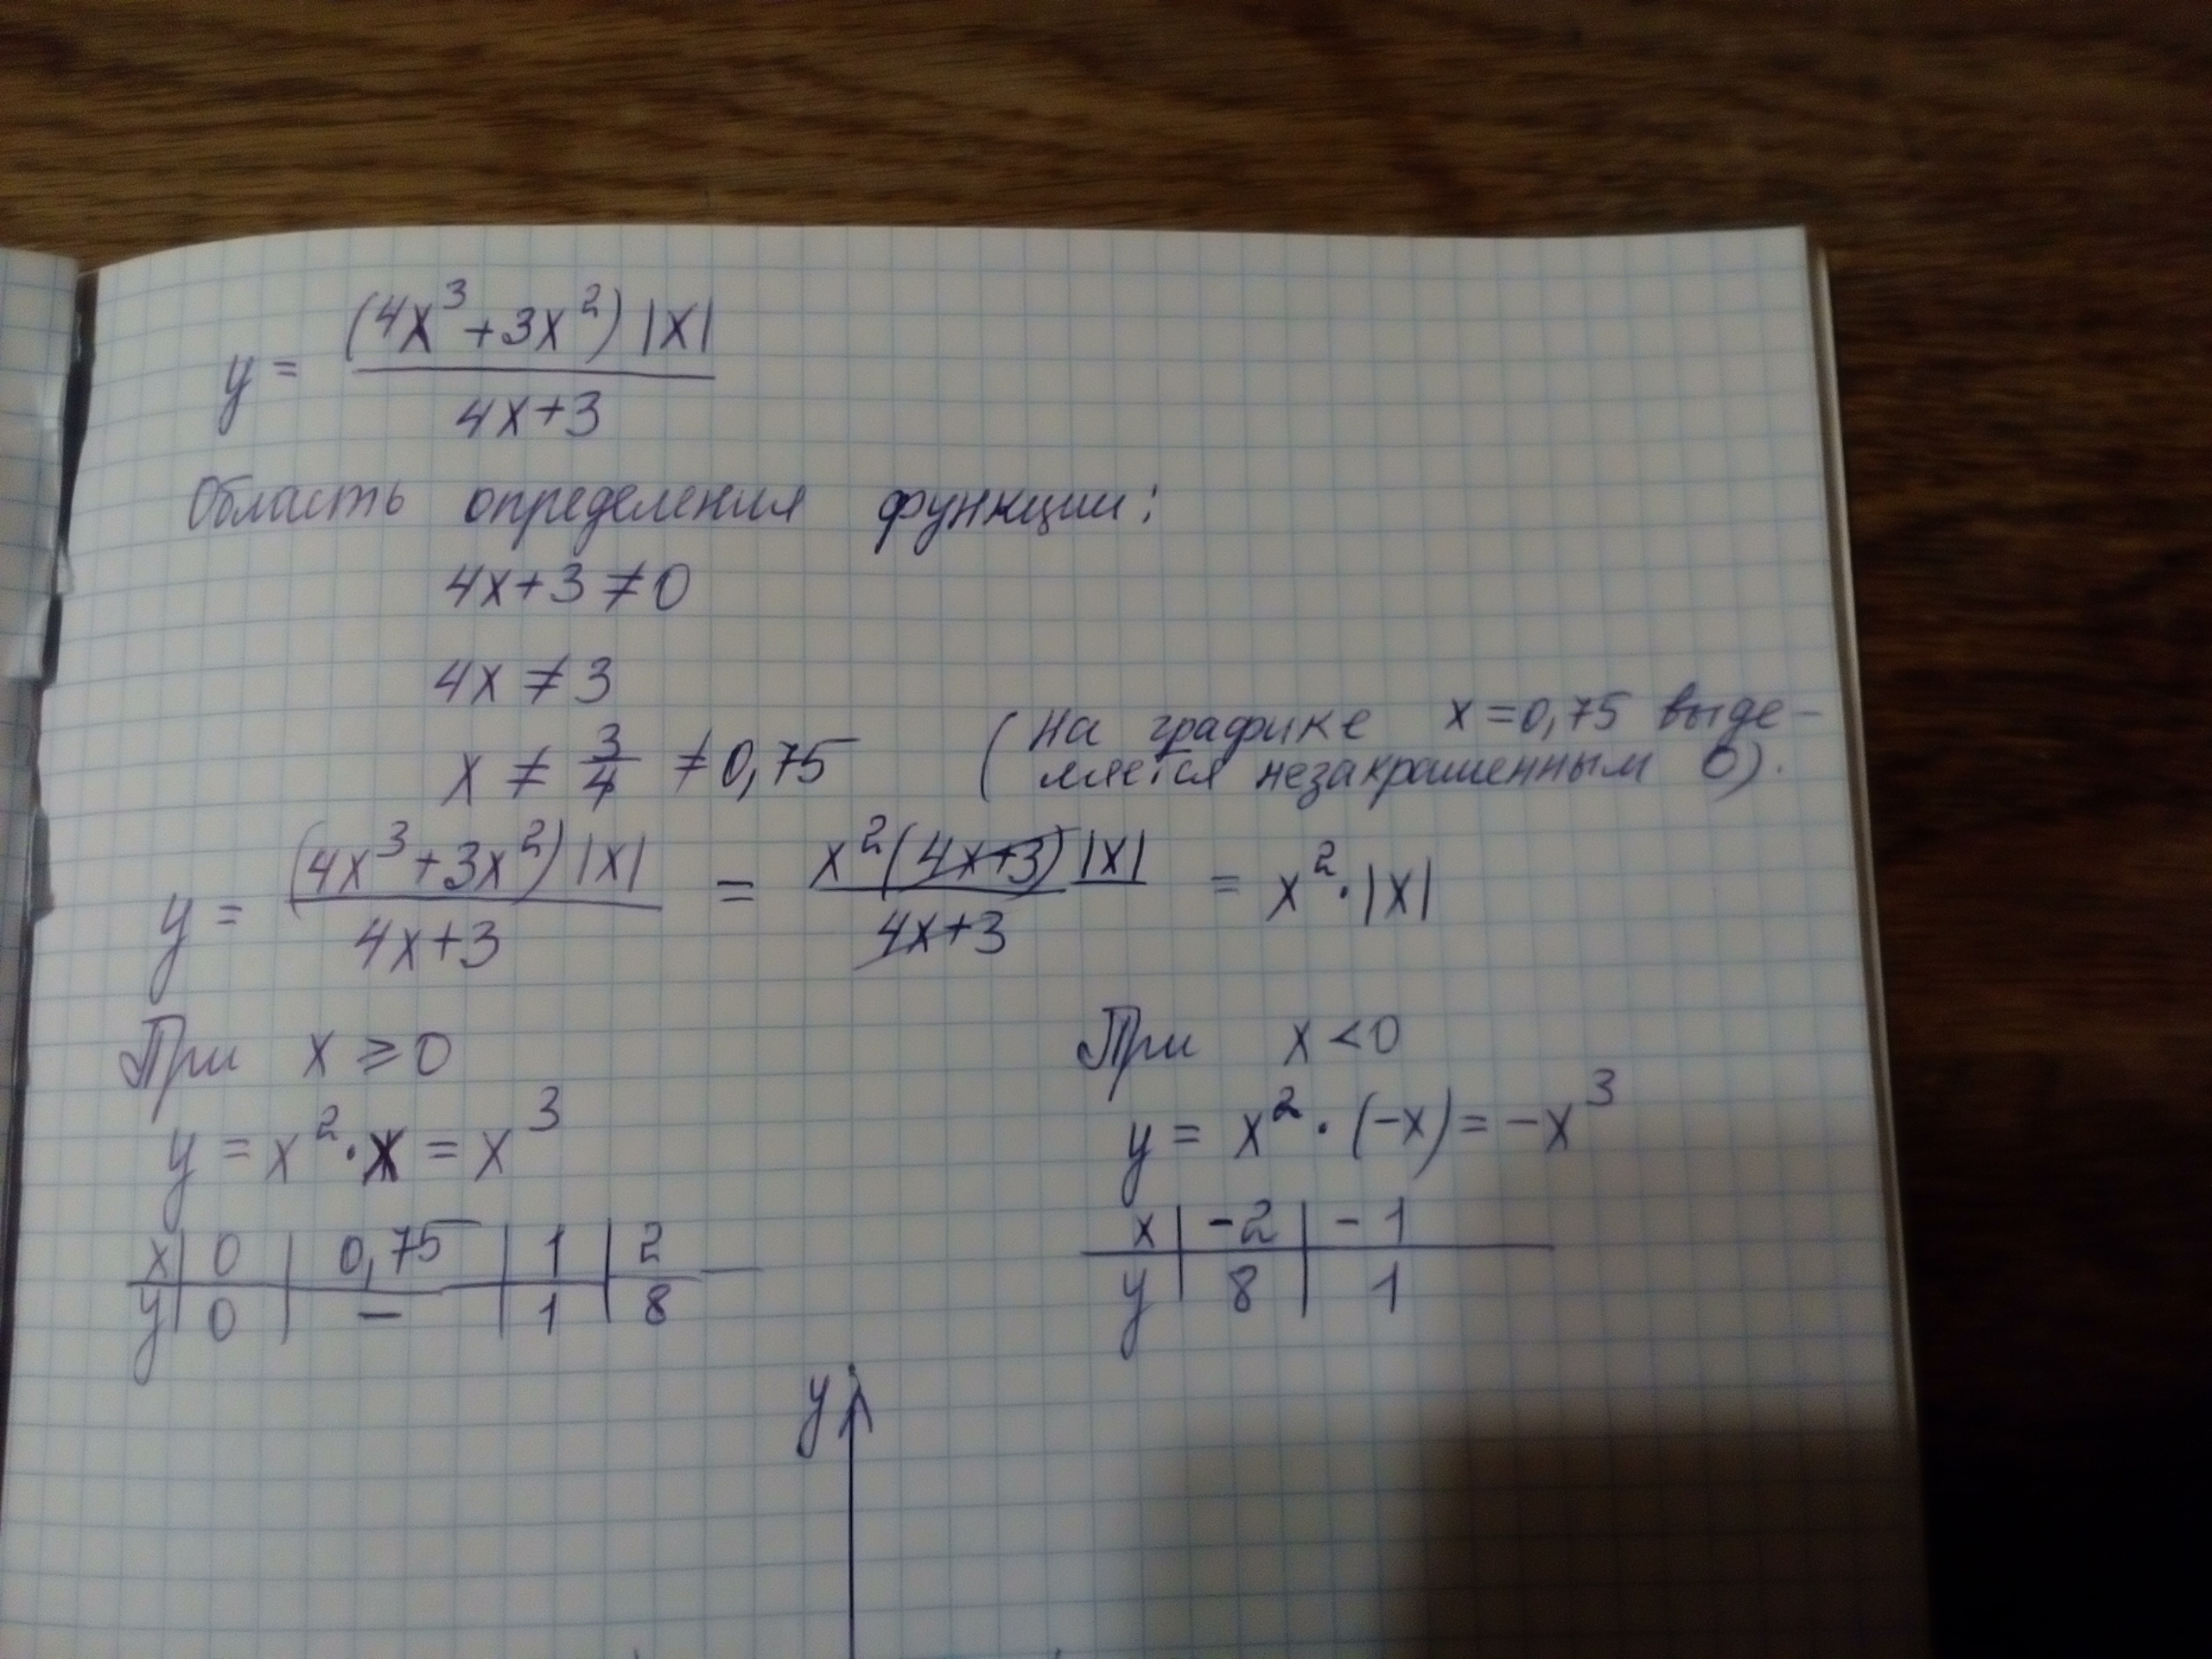 y = (4x³+3x²)|x| / 4x+3
Область определения функции:
4x+3≠0
4x≠3
x ≠ 3/4 ≠0,75 (На графике x=0,75 выде-
ляется незакрашенным о).
y = (4x³+3x²)|x| / 4x+3 = x²(4x+3)|x| / 4x+3 = x²·|x|
При x ≥ 0
y = x²·x = x³
x | 0 | 0,75 | 1 | 2
y | 0 | – | 1 | 8
При x < 0
y = x²·(-x) = -x³
x | -2 | -1
y | 8 | 1
y